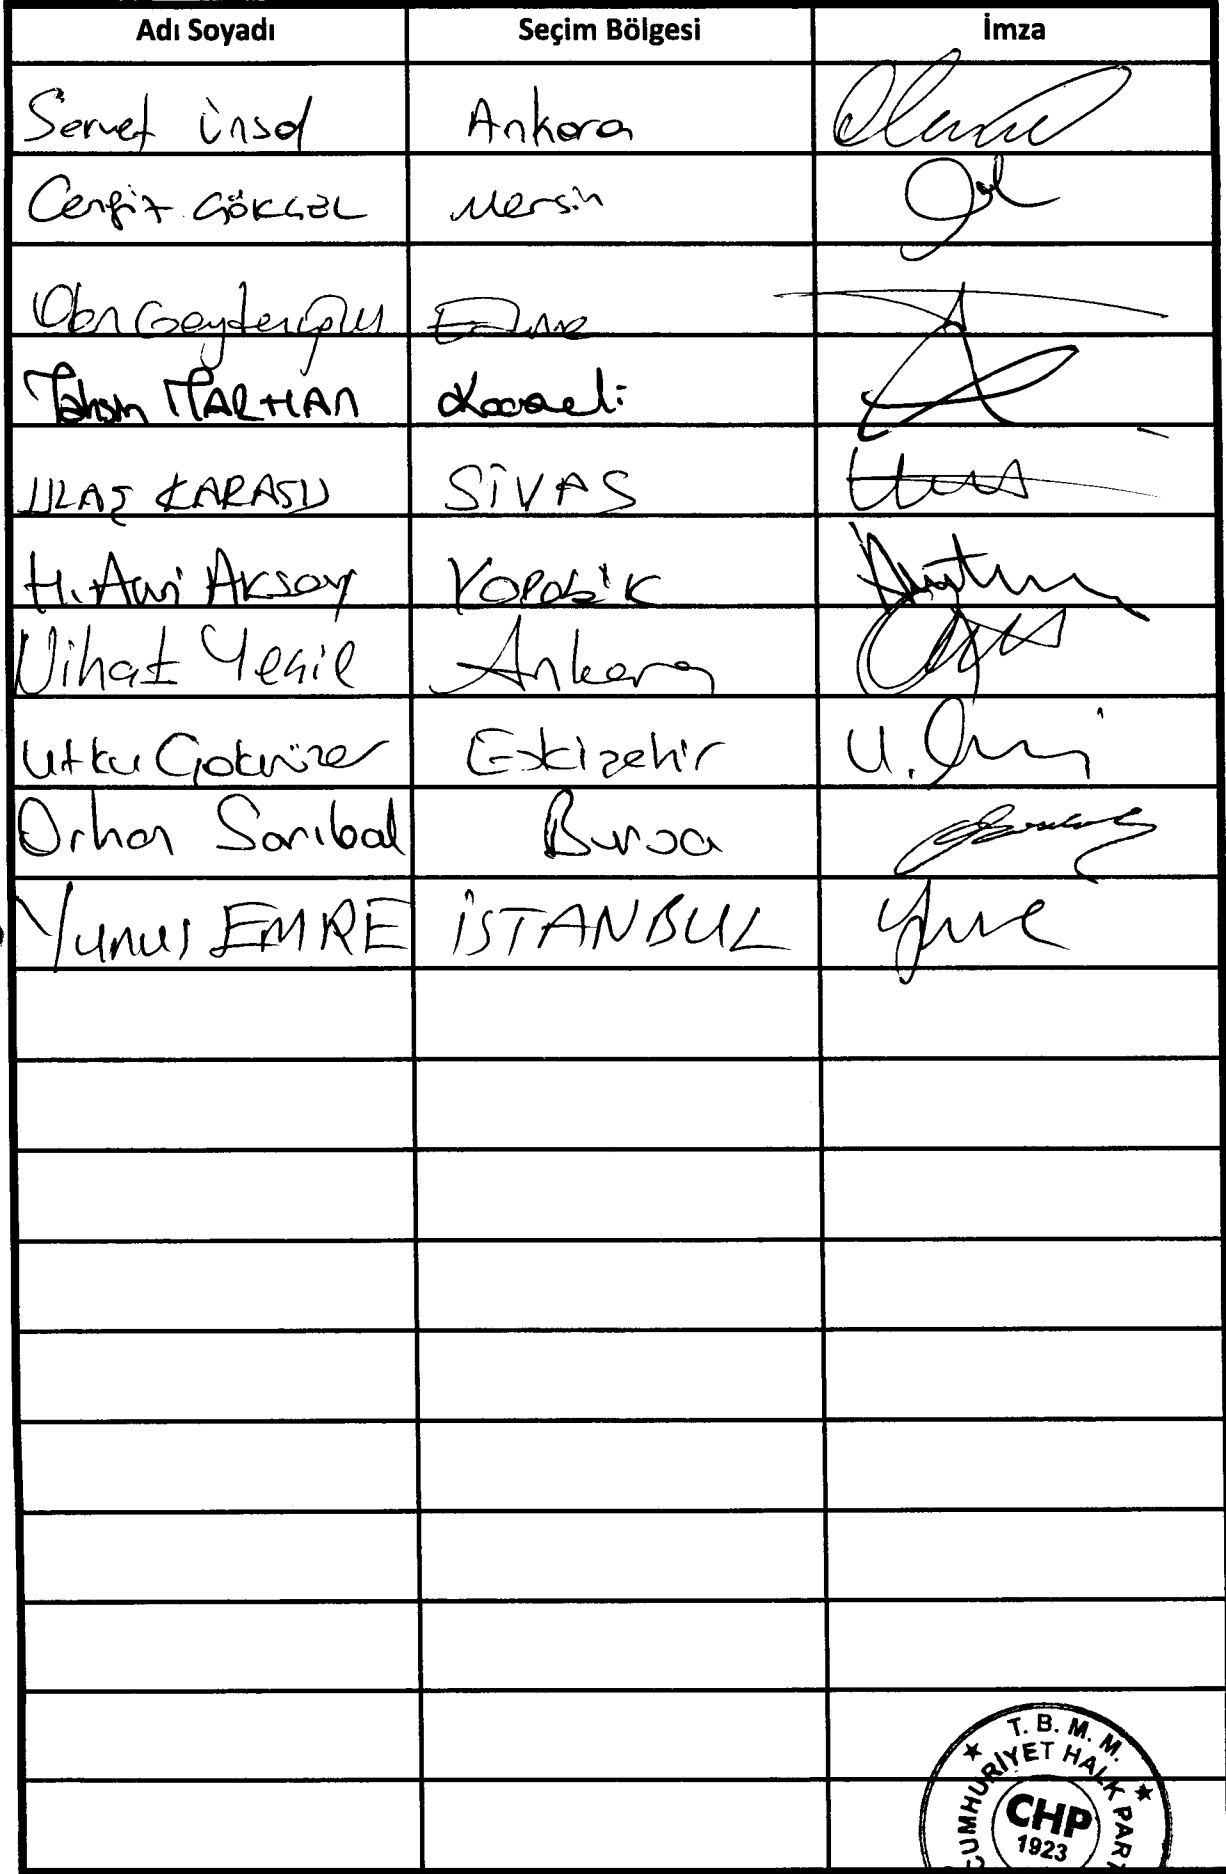 Adı Soyadı Seçim Bölgesi İmza
Servet Ünsal Ankara
Cengiz GÖKÇEL Mersin
Okan Gaytancıoğlu Edirne
Tahsin TARHAN Kocaeli
ULAŞ KARASU SİVAS
H. Avni Aksoy Karabük
Nihat Yeşil Ankara
Utku Çakırözer Eskişehir
Orhan Sarıbal Bursa
Yunus EMRE İSTANBUL
T. B. M. M.
CUMHURİYET HALK PAR
CHP
1923